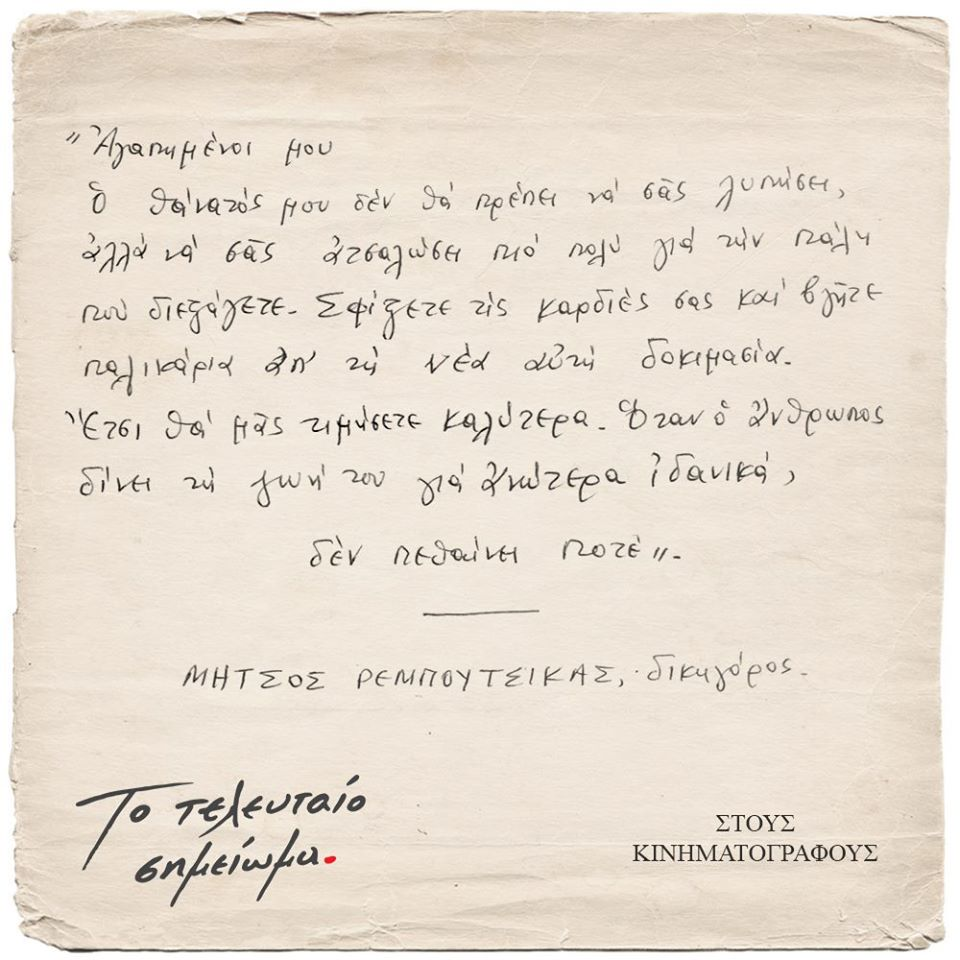 "Ἀγαπημένοι μου
Ὁ θάνατός μου δέν θά πρέπει νά σᾶς λυπήσει,
ἀλλά νά σᾶς ἀτσαλώσει πιό πολύ γιά τήν πάλη
πού διεξάγετε. Σφίξετε τίς καρδιές σας καί βγῆτε
παλικάρια ἀπ' τή νέα αὐτή δοκιμασία.
Ἔτσι θά μᾶς τιμήσετε καλύτερα. Ὅταν ὁ ἄνθρωπος
δίνει τή ζωή του γιά ἀνώτερα ἰδανικά,
δέν πεθαίνει ποτέ".
ΜΗΤΣΟΣ ΡΕΜΠΟΥΤΣΙΚΑΣ, δικηγόρος.
Το τελευταίο
σημείωμα.
ΣΤΟΥΣ
ΚΙΝΗΜΑΤΟΓΡΑΦΟΥΣ